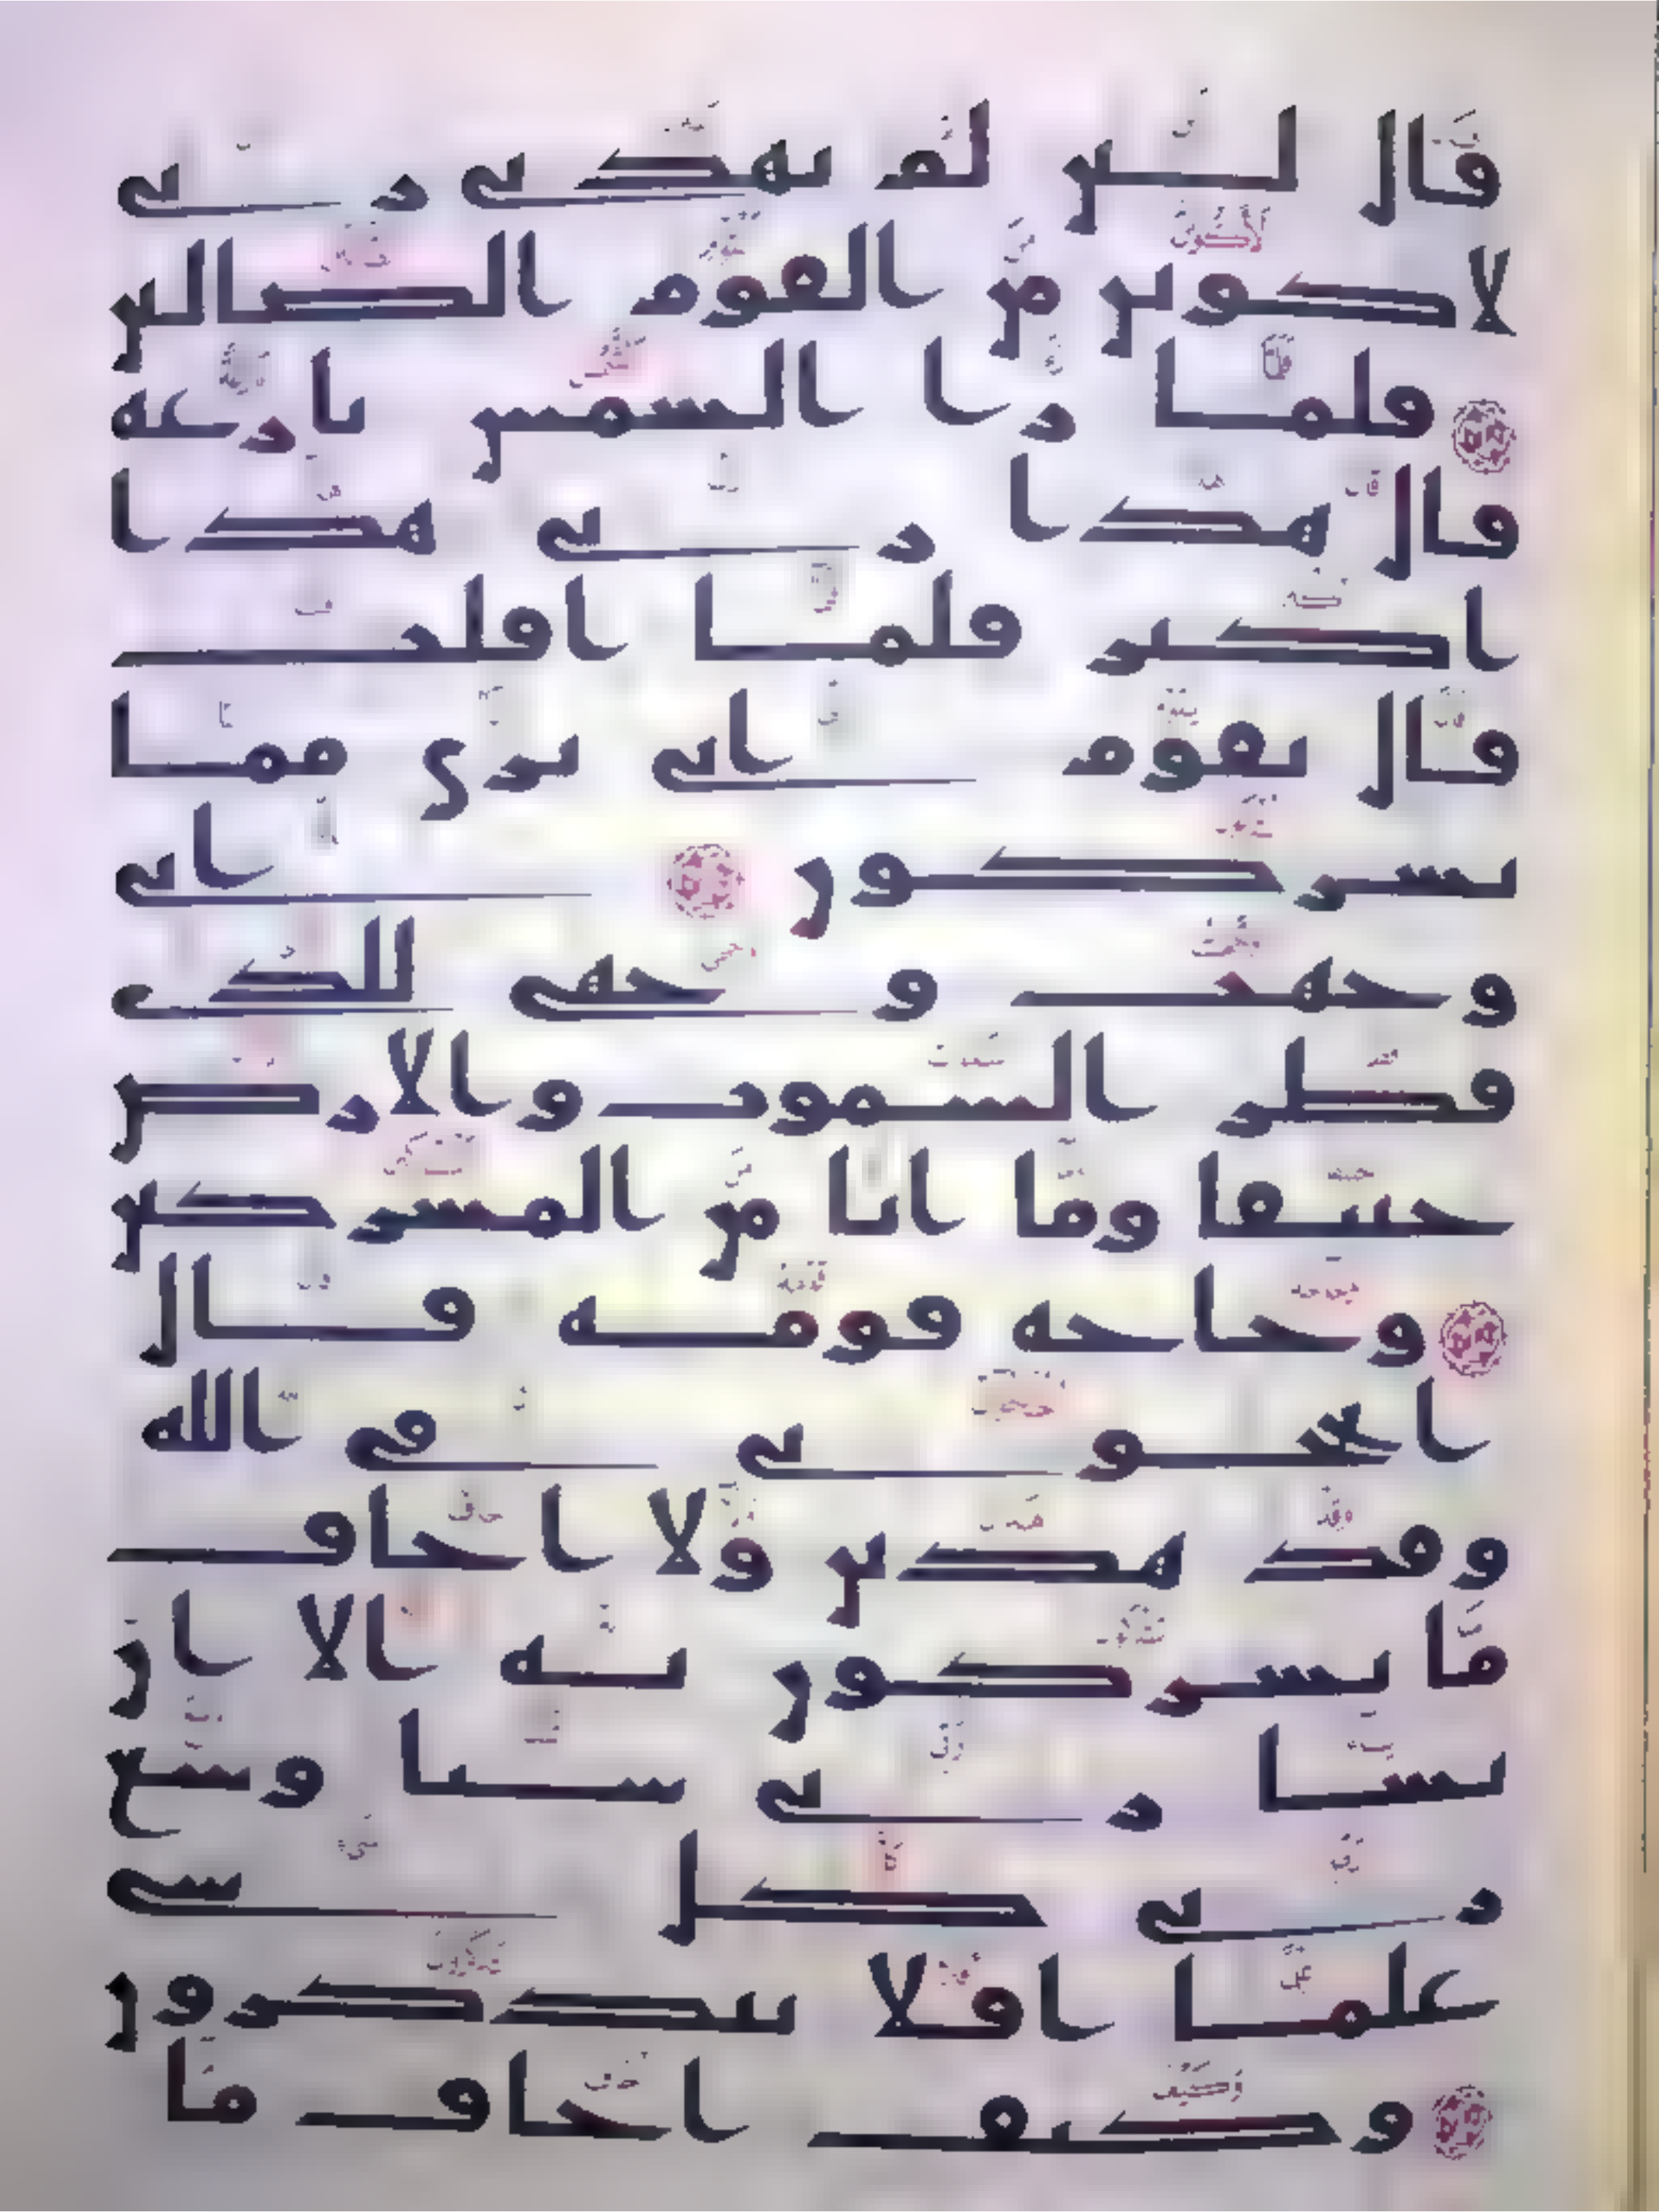 قال لئن لم يهدني ربي
لاكونن من القوم الضالين
فلما را الشمس بازغة
قال هذا ربي هذا
اكبر فلما افلت
قال يقوم اني بري مما
تشركون اني
وجهت وجهي للذي
فطر السموت والارض
حنيفا وما انا من المشركين
وحاجه قومه قال
اتحجوني في الله
وقد هدين ولا اخاف
ما تشركون به الا ان
يشا ربي شيا وسع
ربي كل شي
علما افلا تتذكرون
وكيف اخاف ما